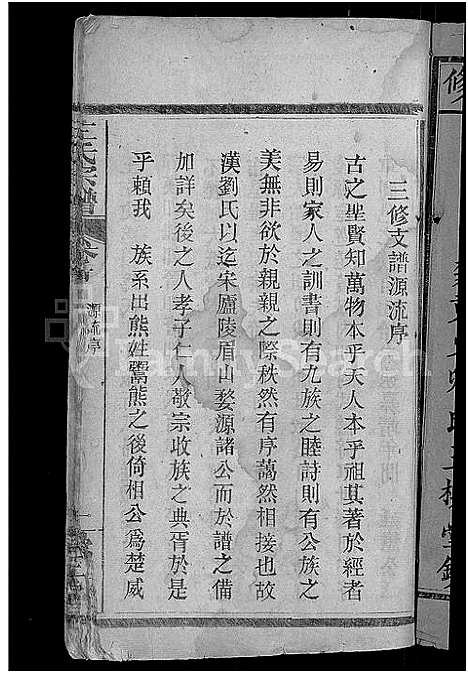 三修支譜源流序
古之聖賢知萬物本乎天人本乎祖其著於經者
易則家人之訓書則有九族之睦詩則有公族之
美無非欲於親親之際秩然有序藹然相接也故
漢劉氏以迄宋廬陵眉山婺源諸公而於譜之備
加詳矣後之人孝子仁人敬宗收族之典胥於是
乎賴我 族系出熊姓鬻熊之後倚相公爲楚威
氏宗譜
卷首
源流序
修
FamilySearch